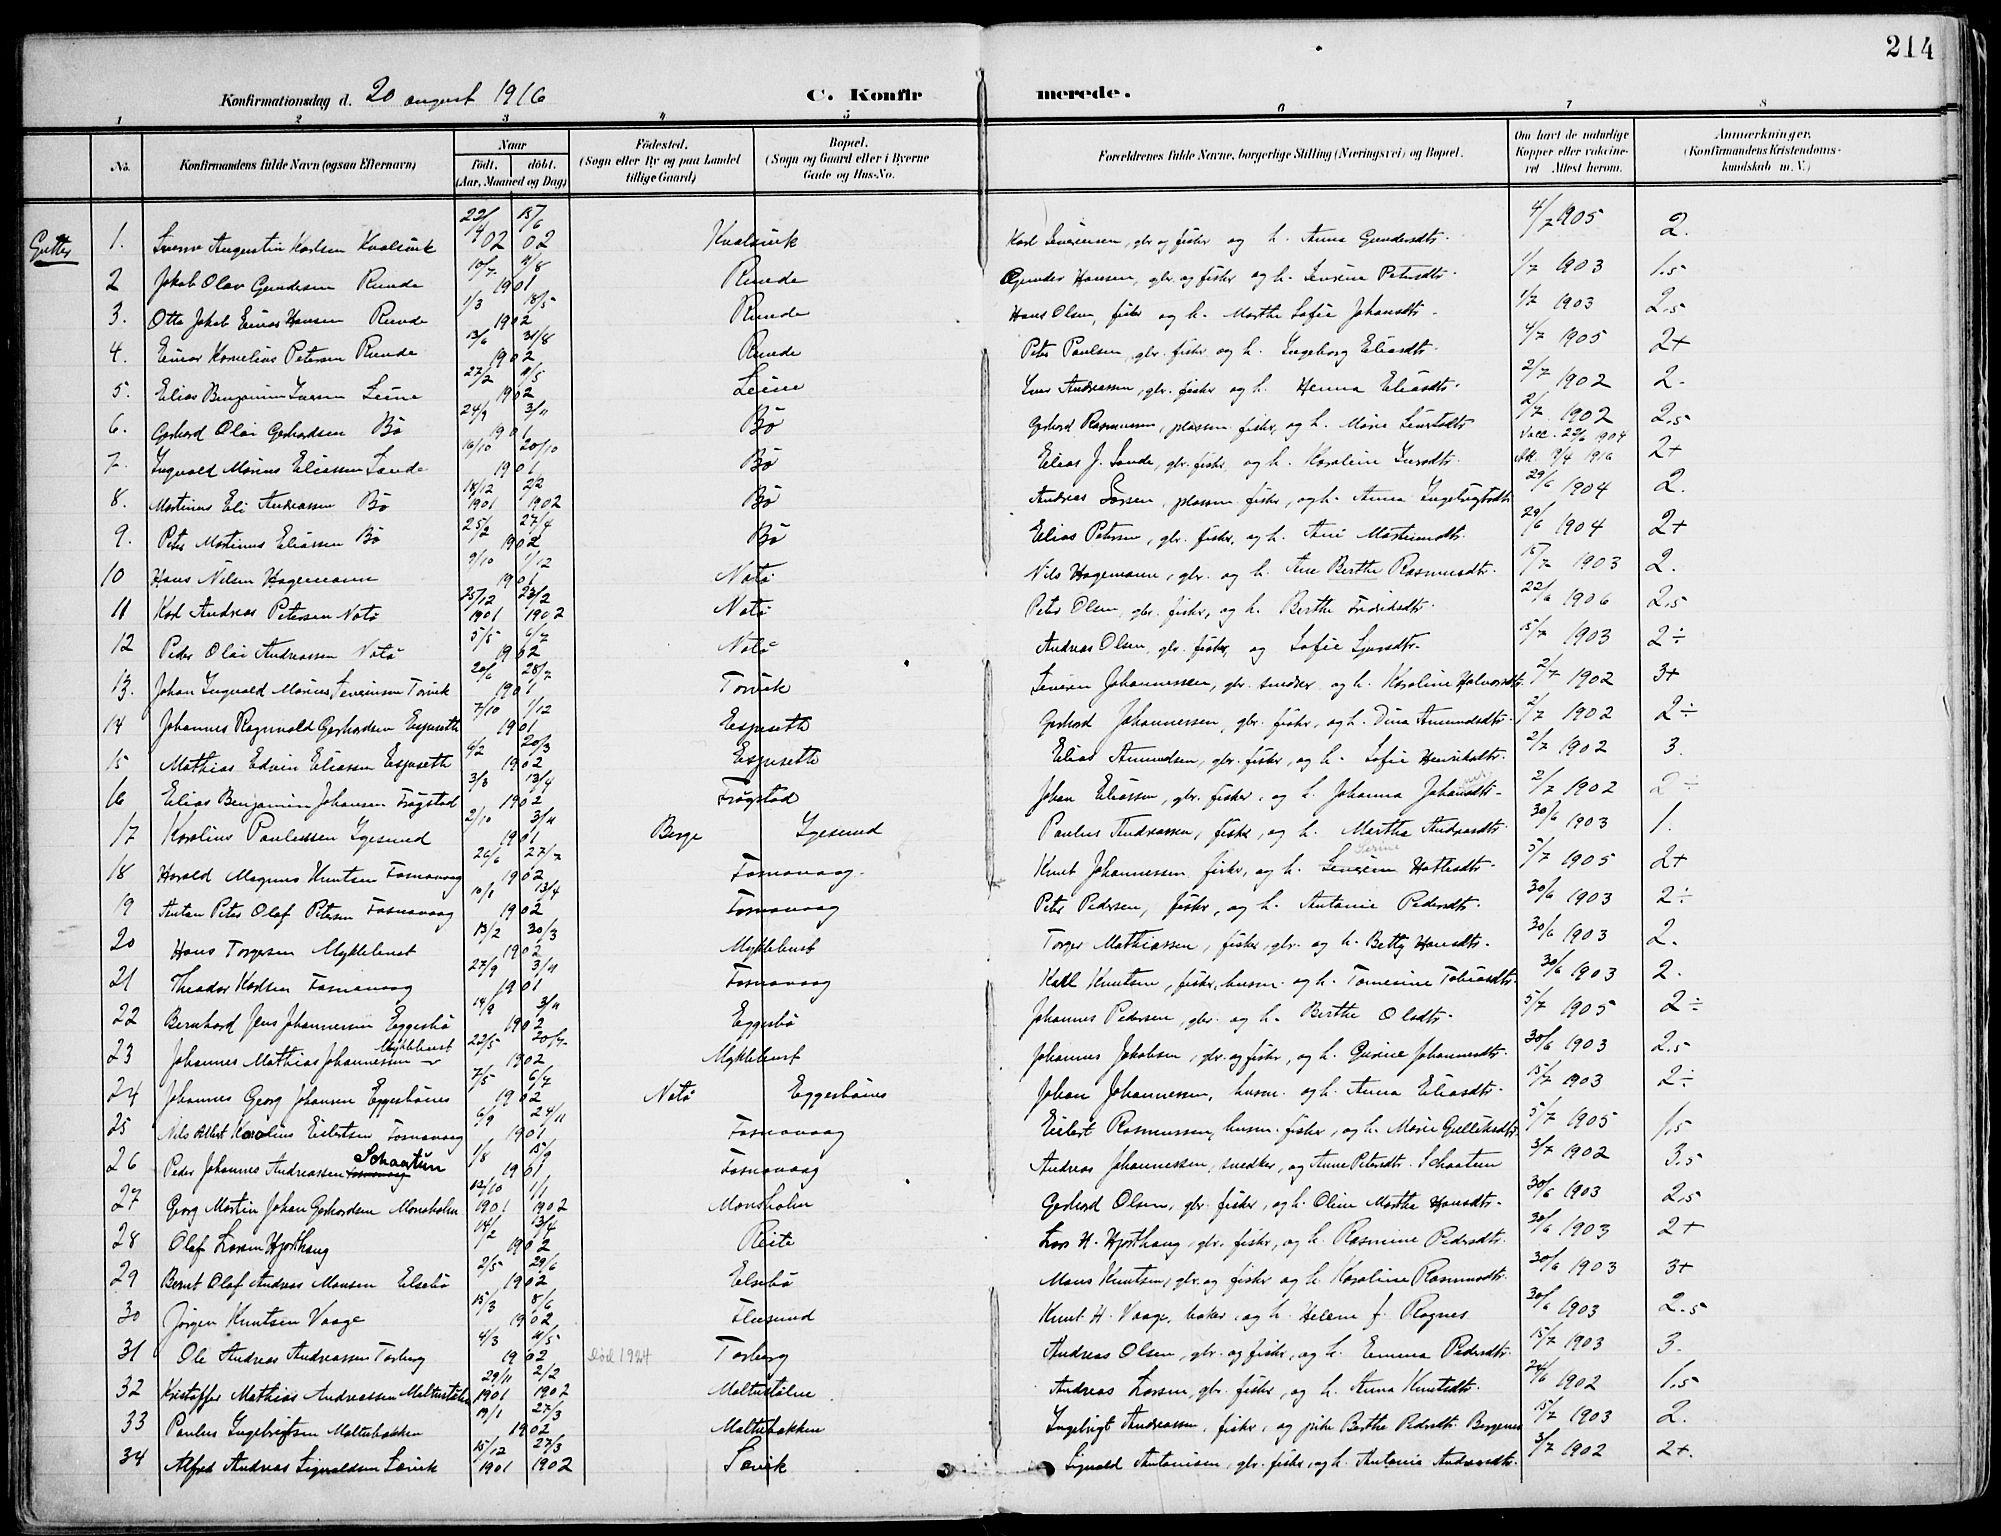 214
Konfirmationsdag d. 20 august 1916 C. Konfirmerede.
1 2 3 4 5 6 7 8
No. Konfirmandens fulde Navn (ogsaa Efternavn) Naar födt. döbt. (Aar, Maaned og Dag) Födested. (Sogn eller By og paa Landet tillige Gaard) Bopæl. (Sogn og Gaard eller i Byerne Gade og Hus-No. Forældrenes fulde Navne, borgerlige Stilling (Næringsvei) og Bopæl. Om havt de naturlige Kopper eller vaccineret Attest herom. Anmærkninger, (Konfirmandens Kristendomskundskab m. V.)
Gutter
1. Sverre Augustin Karlsen Kvalsvik 22/4 02 15/6 02 Kvalsvik Karl Severensen, gbr og fisker og h. Anna Gundersdtr. 4/7 1905 2.
2 Jakob Olav Gundersen Runde 10/7 11/8 1901 Runde Gunder Hansen, gbr. og fisker og h. Sevrine Petersdtr. 1/7 1903 1.5
3. Otto Jakob Einar Hansen Runde 1/3 18/5 1902 Runde Hans Olsen, fisker og h. Marthe Sofie Johansdtr. 1/7 1903 2.5
4. Einar Kornelius Petersen Runde 13/6 31/8 1902 Runde Peter Paulsen, gbr. fisker og h. Ingeborg Eliasdtr. 4/7 1905 2+
5. Elias Benjamin Iversen Leine 27/2 11/5 1902 Leine Iver Andreassen, gbr. fisker og h. Henna Eliasdtr. 2/7 1902 2-
6. Gerhard Olai Gerhardsen Bö 24/9 3/11 1901 Bö Gerhard Rasmussen, plassm. fisker, og h. Marie 2/7 1902 2.5
7. Ingvald Marius Eliassen Sande 16/10 20/10 1901 Bö Elias J. Sande, gbr. fisker, og h. Karoline Iversdtr. Vacc. 22/6 1904 Att. 9/4 1916 2+
8. Martinus Eli Andreassen Bö 18/12 1901 22 1902 Bö Andreas Larsen, plassm fisker, og h. Anna Ingebrigtsdtr 29/6 1904 2.
9. Peter Martinus Eliassen Bö 25/2 27/4 1902 Bö Elias Petersen, gbr. fisker, og h. Ane Martinusdtr. 29/6 1904 2+
10 Hans Nilsen Hagemann 9/10 1/12 1901 Notö Nils Hagemann, gbr. og h. Ane Berthe Rasmusdtr. 15/7 1903 2.
11 Karl Andreas Petersen Notö 25/12 1901 23/2 1902 Notö Peter Olsen, gbr. fisker, og h. Berthe Fredriksdtr. 22/6 1906 2.5
12 Peder Olai Andreassen Notö 5/5 6/7 1902 Notö Andreas Olsen, gbr. fisker, og Sofie Sjursdtr. 15/7 1903 2÷
13. Johan Ingvald Marius Severinsen Torvik 20/6 28/7 1901 Torvik Severin Johannessen, gbr. snedker og h. Karoline Halvorsdtr. 2/7 1902 3+
14 Johannes Ragnvald Gerhardsen Espeseth 7/10 1/12 1901 Espeseth Gerhard Johannessen, gbr. fisker, og h. Dina Amundsdtr. 2/7 1902 2÷
15 Mathias Edvin Eliassen Espeseth 4/2 20/3 1902 Espeseth Elias Amundsen, gbr. fisker, og h. Sofie Henriksdtr. 2/7 1902 3.
16 Elias Benjamin Johansen Frøgstad 3/3 13/4 1902 Frøgstad Johan Eliassen, gbr. fisker, og h. Johanna Johansdtr. 2/7 1902 2÷
17 Karolius Paulussen Igesund 2/10 3/11 1901 Berge Igesund Paulus Andreassen, fisker, og h. Martha Andreasdtr. 30/6 1903 1.
18 Harald Magnus Knutsen Fosnavaag 26/6 27/7 1902 Fosnavaag. Knut Johannessen fisker, og h. Severine Serine Hatlesdtr. 5/7 1905 2+
19 Anton Peter Olaf Petersen Fosnavaag 10/1 13/4 1902 Fosnavaag Peter Pedersen, fisker, og h. Antonie Pedersdtr. 30/6 1903 2÷
20 Hans Torgersen Myklebust 13/2 30/3 1902 Myklebust Torger Mathiassen, fisker, gbr. og h. Betty Hansdtr. 30/6 1903 2.
21 Theodor Karlsen Fosnavaag 27/9 3/11 1901 Fosnavaag Karl Knutsen, fisker, husm. og h. Tomesine Tobiasdtr. 30/6 1903 2.
22 Bernhard Jens Johannessen Eggesbö 14/9 3/11 1902 Eggesbö Johannes Pedersen, gbr. og h. Berthe Olsdtr. 5/7 1905 2÷
23 Johannes Mathias Johannessen Myklebust 22/5 20/7 1902 Myklebust Johannes Jakobsen, gbr. og fisker, og h. Gurine Johannesdtr. 30/6 1903 2.5
24 Johannes Georg Johansen Eggesbönes 7/5 6/7 1902 Notö Eggesbönes Johan Johannessen, husm. og h. Anna Eliasdtr. 15/7 1903 2÷
25 Nils Albert Karolius Eilertsen Fosnavaag 6/9 24/11 1901 Fosnavaag Eilert Rasmussen, husm. fisker, og h. Marie Gulliksdtr. 5/7 1905 1.5
26 Peder Johannes Andreassen Fosnavaag Schaatun 1/8 15/9 1901 Fosnavaag Andreas Johannessen, snedker, og Anne Petersdtr. Schaatun 3/7 1902 3.5
27 Georg Martin Johan Gerhardsen Monsholm 12/10 1901 1/1 1902 Monsholm Gerhard Olsen, gbr. fisker, og h. Oline Martha Hansdtr. 30/6 1903 2.5
28 Olaf Larsen Hjorthaug 14/2 13/4 1902 Reite Lars H. Hjorthaug, gbr. fisker, og h. Rasmine Pedersdtr. 30/6 1903 2+
29 Bernt Olaf Andreas Monsen Elsebö 2/5 29/6 1902 Elsebö Mons Knutsen, gbr. og fisker og h. Karoline Rasmusdtr. 30/6 1903 3+
30 Jørgen Knutsen Vaage 15/3 8/6 1902 Flusund Knut H. Vaage, baker, og h. Helene f. Rognes 30/6 1903 2.5
31 Ole Andreas Andreassen Tarberg 4/3 11/5 1902 Död 1924 Tarberg Andreas Olsen, gbr. og fisker, og h. Emma Pedersdtr. 15/7 1903 3.
32 Kristoffer Mathias Andreassen Moltustølen 29/11 1901 2/2 1902 Moltustølen Andreas Larsen, gbr. fisker, og h. Anna Knutsdtr. 24/6 1902 1.5
33 Paulus Ingebrigtsen Moltubakken 19/1 27/3 1902 Moltubakken Ingebrigt Andreassen, fisker, og pike Berthe Pedersdtr. Bergenes 15/7 1903 2.
34 Alfred Andreas Sigvaldsen Sævik 15/12 1901 27/3 1902 Sævik Sigvald Antonisen, gbr. fisker, og h. Antonia Andreasdtr. 3/7 1902 2+.